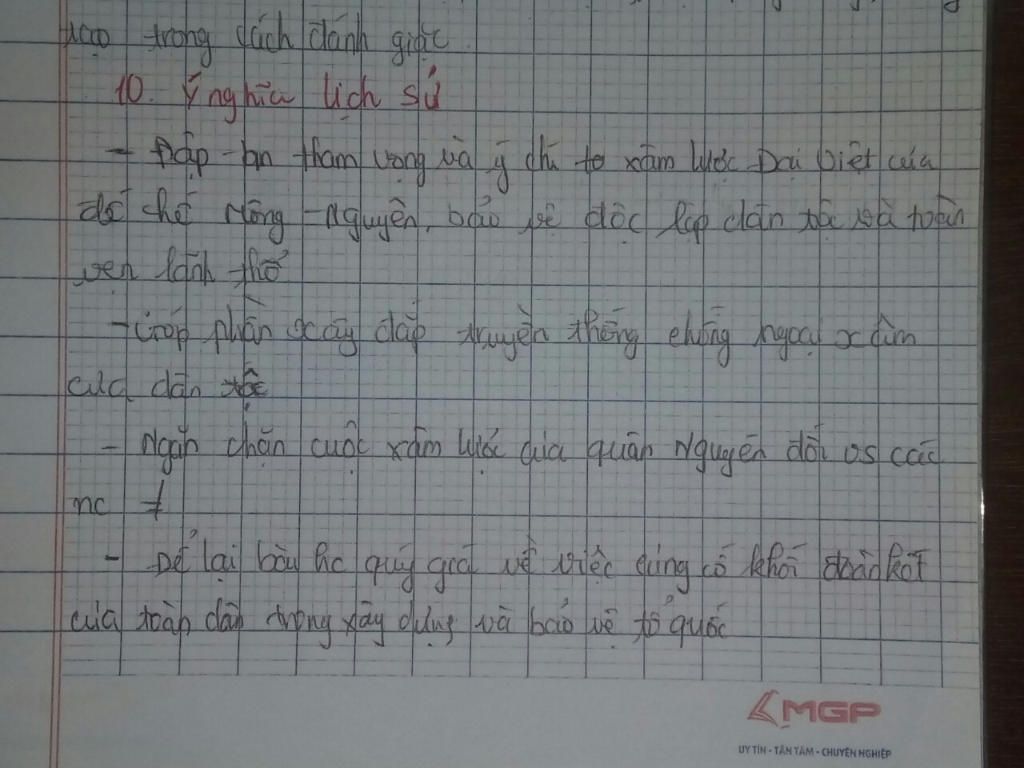 tạo trong cách đánh giặc
10. Ý nghĩa lịch sử
- Đập tan tham vọng và ý chí to xâm lược Đại Việt của
đế chế Mông - Nguyên, bảo vệ độc lập dân tộc và toàn
vẹn lãnh thổ
- Góp phần xây đắp truyền thống chống ngoại xâm
của dân tộc
- Ngăn chặn cuộc xâm lược của quân Nguyên đối vs các
nc ≠
- Để lại bài hc quý giá về việc củng cố khối đoàn kết
của toàn dân trong xây dựng và bảo vệ tổ quốc
MGP
UY TÍN - TẬN TÂM - CHUYÊN NGHIỆP